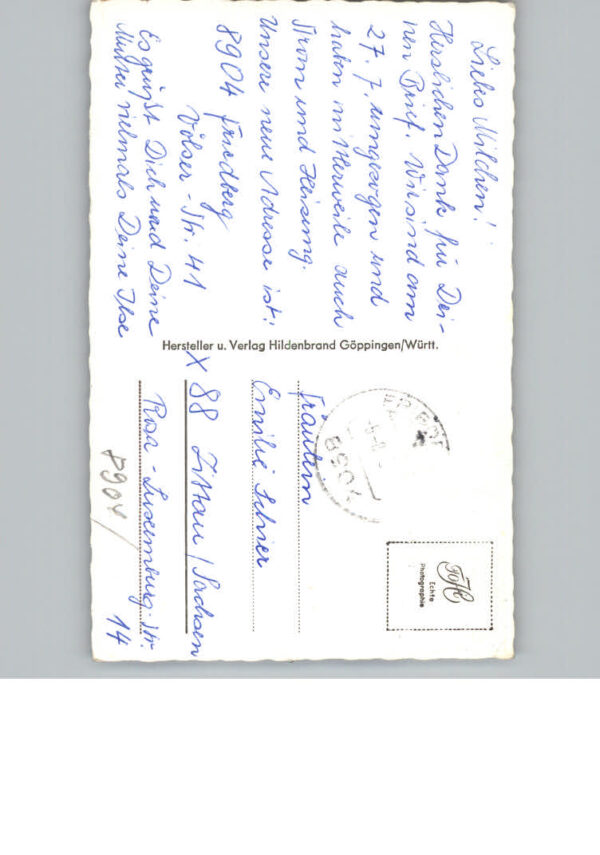 Liebes Milchen!
Herzlichen Dank für Dei-
nen Brief. Wir sind am
27.7. umgezogen und
haben mittlerweile auch
Strom und Heizung.
Unsere neue Adresse ist:
8904 Friedberg
Völser-Str. 41
Es grüßt Dich und Deine
Mutter vielmals Deine Ilse
Hersteller u. Verlag Hildenbrand Göppingen/Württ.
Fräulein
Emilie
X 88 Zittau / Sachsen
Rosa-Luxemburg-Str.
14
8904
8904
Echte
Photographie